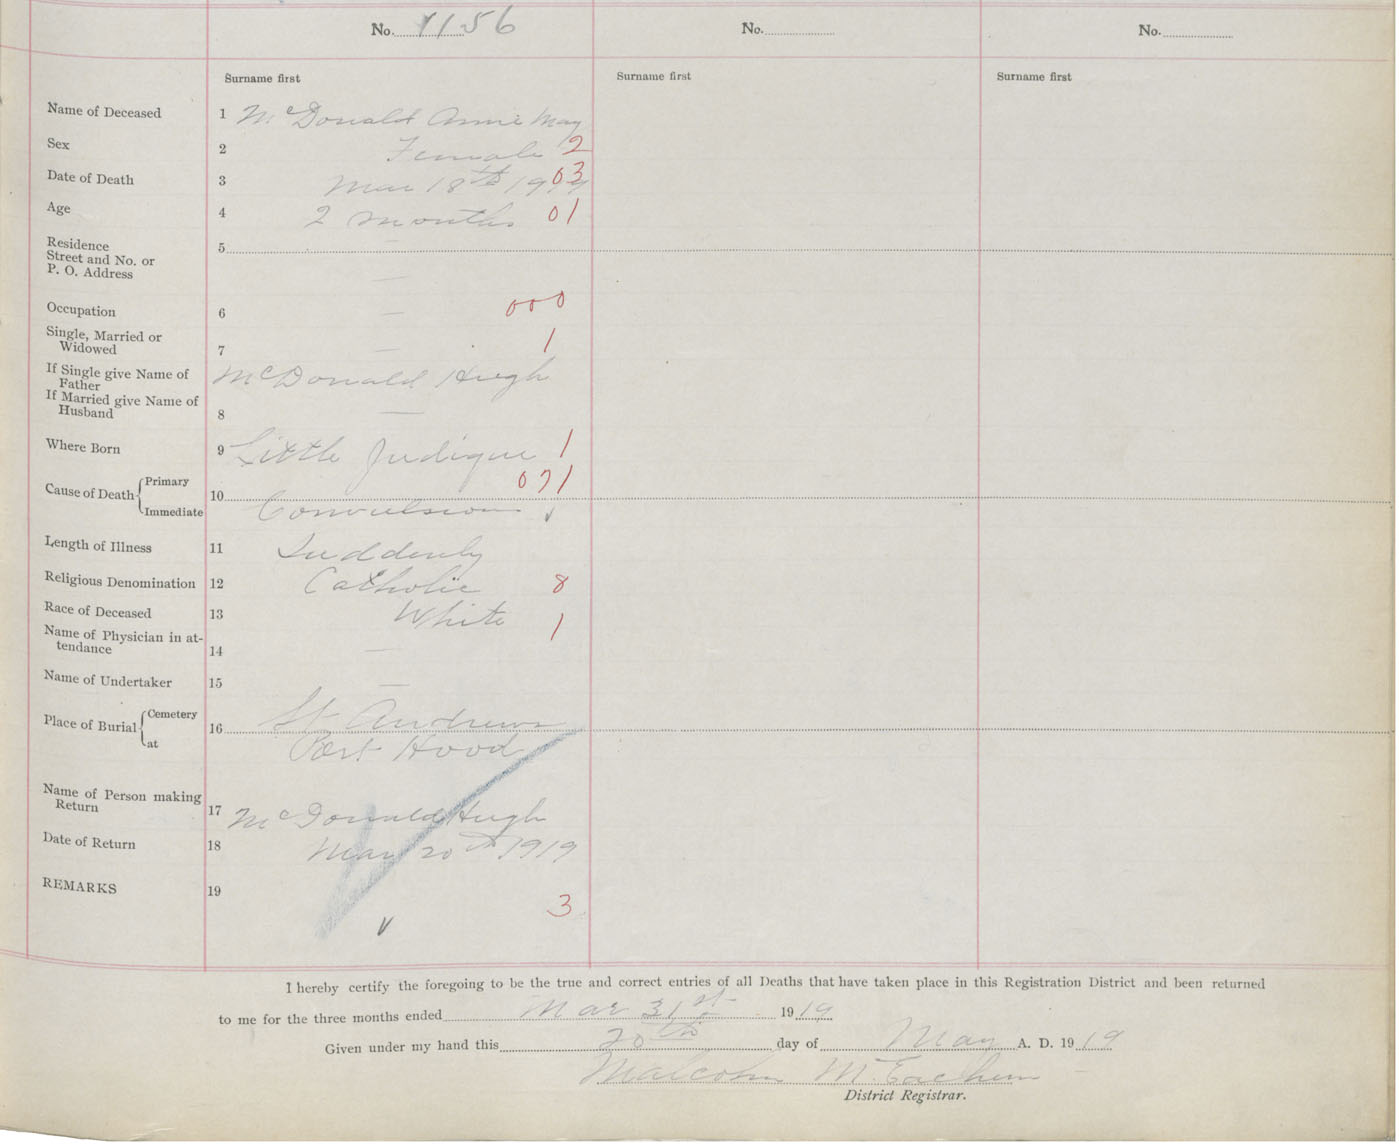 No. 1156 No. No.
Surname first Surname first Surname first
Name of Deceased 1 McDonald Annie May
Sex 2 Female 2
Date of Death 3 Mar 18th 1919 03
Age 4 2 months 01
Residence 5 —
Street and No. or
P. O. Address —
Occupation 6 — 000
Single, Married or
Widowed 7 — 1
If Single give Name of McDonald Hugh
Father
If Married give Name of
Husband 8 —
Where Born 9 Little Judique 1
Cause of Death { Primary 10 071
Immediate Convulsions
Length of Illness 11 Suddenly
Religious Denomination 12 Catholic 8
Race of Deceased 13 White 1
Name of Physician in at-
tendance 14 —
Name of Undertaker 15 —
Place of Burial { Cemetery 16 St. Andrews
at Port Hood
Name of Person making
Return 17 McDonald Hugh
Date of Return 18 May 20th 1919
REMARKS 19
3
I hereby certify the foregoing to be the true and correct entries of all Deaths that have taken place in this Registration District and been returned
to me for the three months ended Mar 31st 1919
Given under my hand this 20th day of May A. D. 1919
Malcolm McEachern
District Registrar.